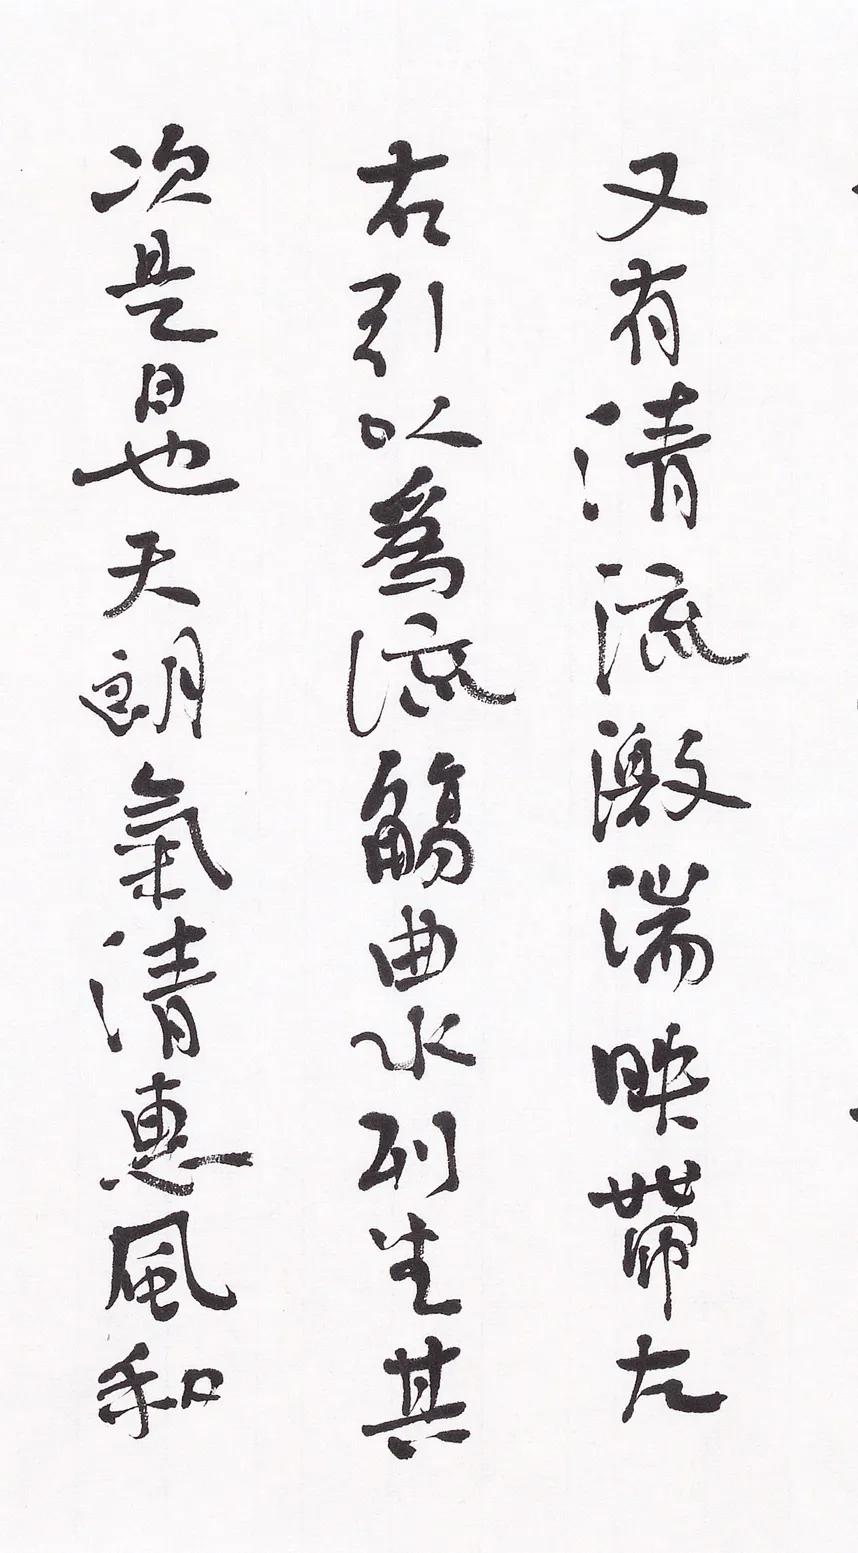 又有清流激湍映帶左
右引以為流觴曲水列坐其
次是日也天朗氣清惠風和